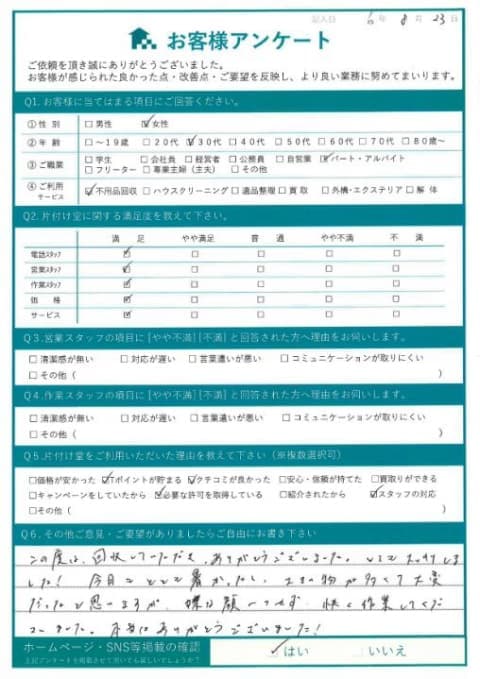 記入日 6年 8月 23日
お客様アンケート
ご依頼を頂き誠にありがとうございました。
お客様が感じられた良かった点・改善点・ご要望を反映し、より良い業務に努めてまいります。
Q1. お客様に当てはまる項目にご回答ください。
①性 別 □男性 ☑女性
②年 齢 □～19歳 □20代 ☑30代 □40代 □50代 □60代 □70代 □80歳～
③ご職業 □学生 □会社員 □経営者 □公務員 □自営業 ☑パート・アルバイト
□フリーター □専業主婦（主夫） □その他
④ご利用サービス ☑不用品回収 □ハウスクリーニング □遺品整理 □買取 □外構・エクステリア □解体
Q2. 片付け堂に関する満足度を教えて下さい。
満 足 やや満足 普 通 やや不満 不 満
電話スタッフ ☑ □ □ □ □
営業スタッフ ☑ □ □ □ □
作業スタッフ ☑ □ □ □ □
価 格 ☑ □ □ □ □
サービス ☑ □ □ □ □
Q3.営業スタッフの項目に[やや不満][不満]と回答された方へ理由をお伺いします。
□清潔感が無い □対応が遅い □言葉遣いが悪い □コミュニケーションが取りにくい
□その他（ ）
Q4.作業スタッフの項目に[やや不満][不満]と回答された方へ理由をお伺いします。
□清潔感が無い □対応が遅い □言葉遣いが悪い □コミュニケーションが取りにくい
□その他（ ）
Q5.片付け堂をご利用いただいた理由を教えて下さい（※複数選択可）
□価格が安かった ☑Tポイントが貯まる ☑クチコミが良かった □安心・信頼が持てた □買取りができる
□キャンペーンをしていたから ☑必要な許可を取得している □紹介されたから ☑スタッフの対応
□その他（ ）
Q6.その他ご意見・ご要望がありましたらご自由にお書き下さい
この度は、回収していただき、ありがとうございました。とてもスッキリしま
した！ 今日はとても暑かったし、大きい物が多くて大変
だったと思いますが、嫌な顔一つせず、快く作業してくだ
さいました。本当にありがとうございました！
ホームページ・SNS等掲載の確認
上記アンケートを掲載させて頂いても宜しいでしょうか？
☑はい □いいえ